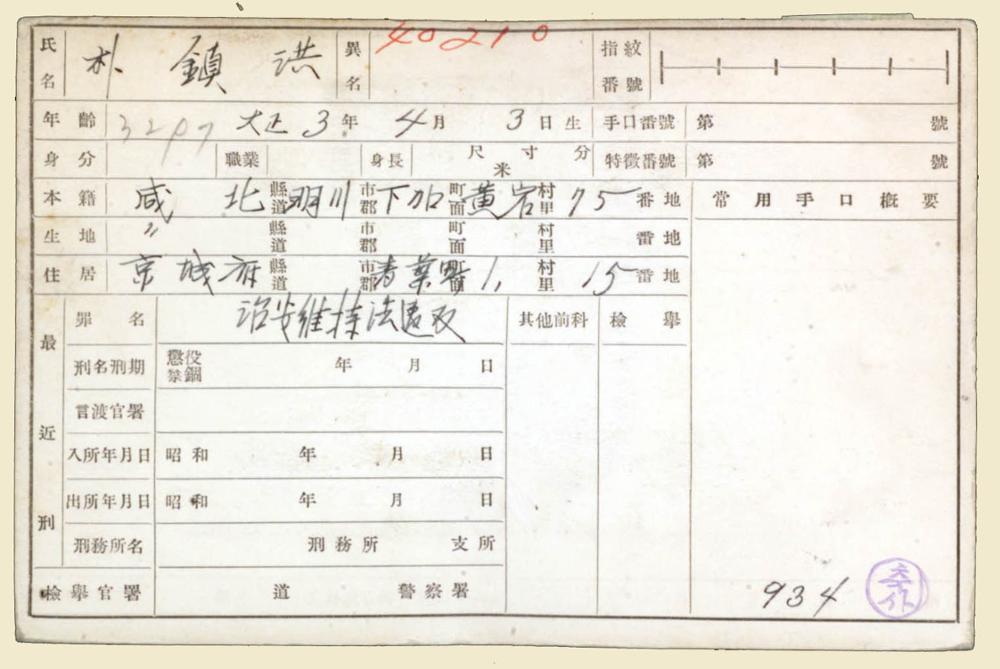 氏名 朴 鎮 洪 異名 40210 指紋番號
年齡 3297 大正 3年 4月 3日生 手口番號 第 號
身分 職業 身長 尺 寸 分 米 特徵番號 第 號
本籍 咸 北 縣道 明川 市郡 下加 町面 黄岩 村里 75 番地 常用手口概要
生地 〃 縣道 市郡 町面 村里 番地
住居 京城府 縣道 市郡 青葉町 町面 1, 村里 15 番地
最近刑 罪名 治安維持法違反 其他前科 檢擧
刑名刑期 懲役 禁錮 年 月 日
言渡官署
入所年月日 昭和 年 月 日
出所年月日 昭和 年 月 日
刑務所名 刑務所 支所
檢擧官署 道 警察署
934